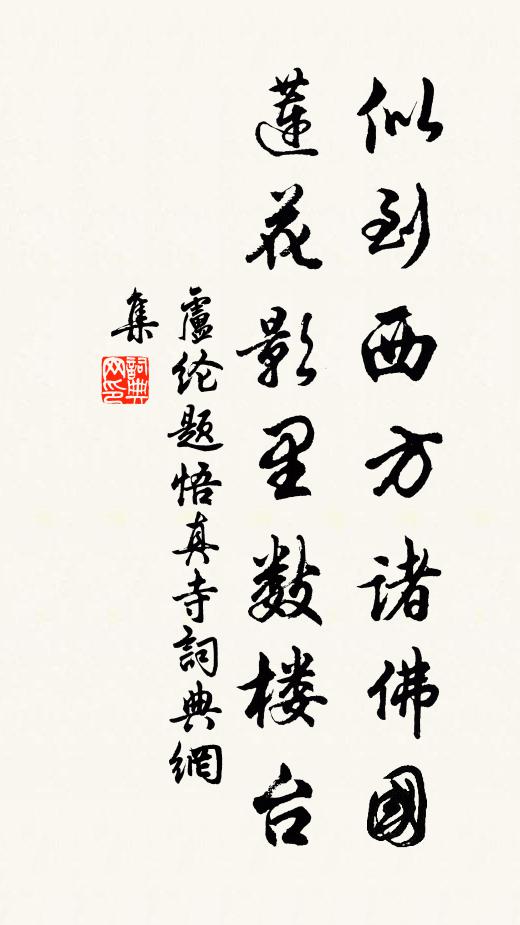 似到西方諸佛國
蓮花影里数楼台
盧纶题悟真寺詞典網
集
詞典网印